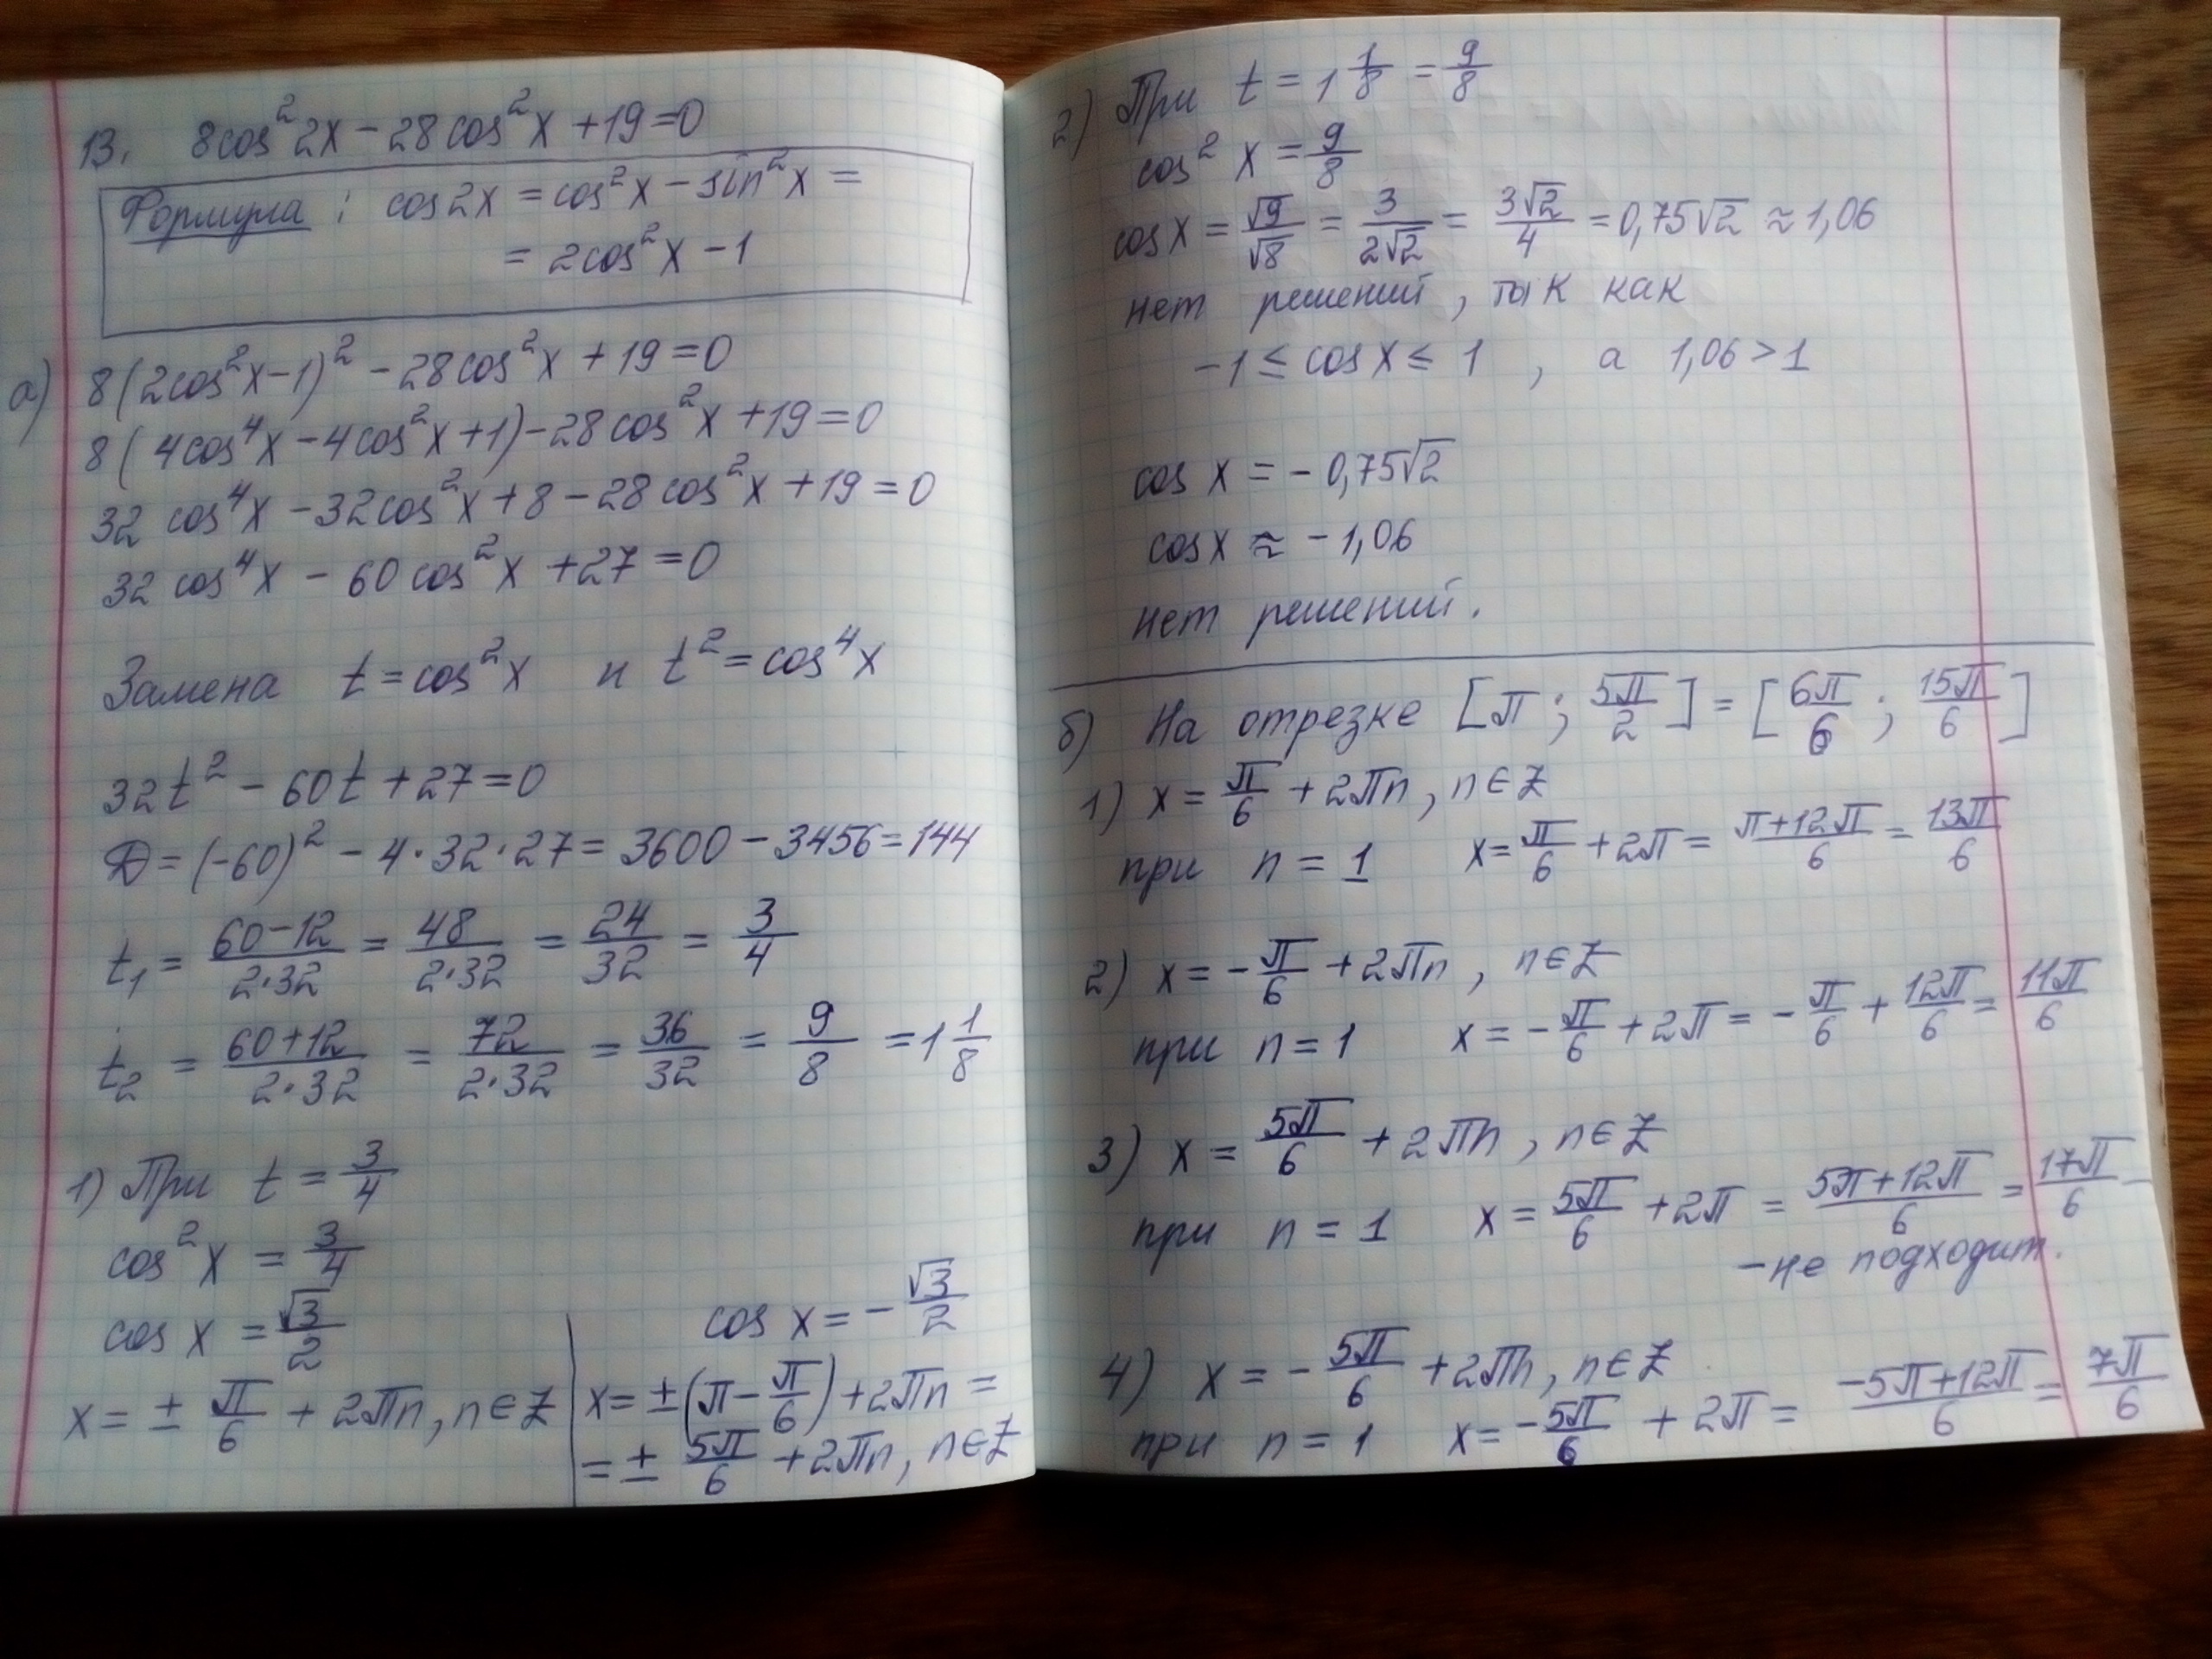 13. 8cos²2x – 28cos²x + 19 = 0
Формула : cos2x = cos²x – sin²x =
= 2cos²x – 1
а) 8(2cos²x–1)² – 28cos²x + 19 = 0
8(4cos⁴x – 4cos²x + 1) – 28cos²x + 19 = 0
32 cos⁴x – 32cos²x + 8 – 28cos²x + 19 = 0
32 cos⁴x – 60 cos²x + 27 = 0
Замена t = cos²x и t² = cos⁴x
32t² – 60t + 27 = 0
D = (–60)² – 4·32·27 = 3600 – 3456 = 144
t₁ = (60–12)/(2·32) = 48/(2·32) = 24/32 = 3/4
t₂ = (60+12)/(2·32) = 72/(2·32) = 36/32 = 9/8 = 1 1/8
1) При t = 3/4
cos²x = 3/4
cos x = √3/2
x = ± π/6 + 2πn, n∈Z
cos x = – √3/2
x = ±(π – π/6) + 2πn =
= ± 5π/6 + 2πn, n∈Z
2) При t = 1 1/8 = 9/8
cos² x = 9/8
cos x = √9/√8 = 3/(2√2) = 3√2/4 = 0,75√2 ≈ 1,06
нет решений, так как
–1 ≤ cos x ≤ 1 , а 1,06 > 1
cos x = – 0,75√2
cos x ≈ – 1,06
нет решений.
б) На отрезке [π ; 5π/2] = [6π/6 ; 15π/6]
1) x = π/6 + 2πn, n∈Z
при n = 1 x = π/6 + 2π = (π+12π)/6 = 13π/6
2) x = – π/6 + 2πn , n∈Z
при n = 1 x = – π/6 + 2π = – π/6 + 12π/6 = 11π/6
3) x = 5π/6 + 2πn, n∈Z
при n = 1 x = 5π/6 + 2π = (5π+12π)/6 = 17π/6 –
– не подходит.
4) x = – 5π/6 + 2πn, n∈Z
при n = 1 x = –5π/6 + 2π = (–5π+12π)/6 = 7π/6